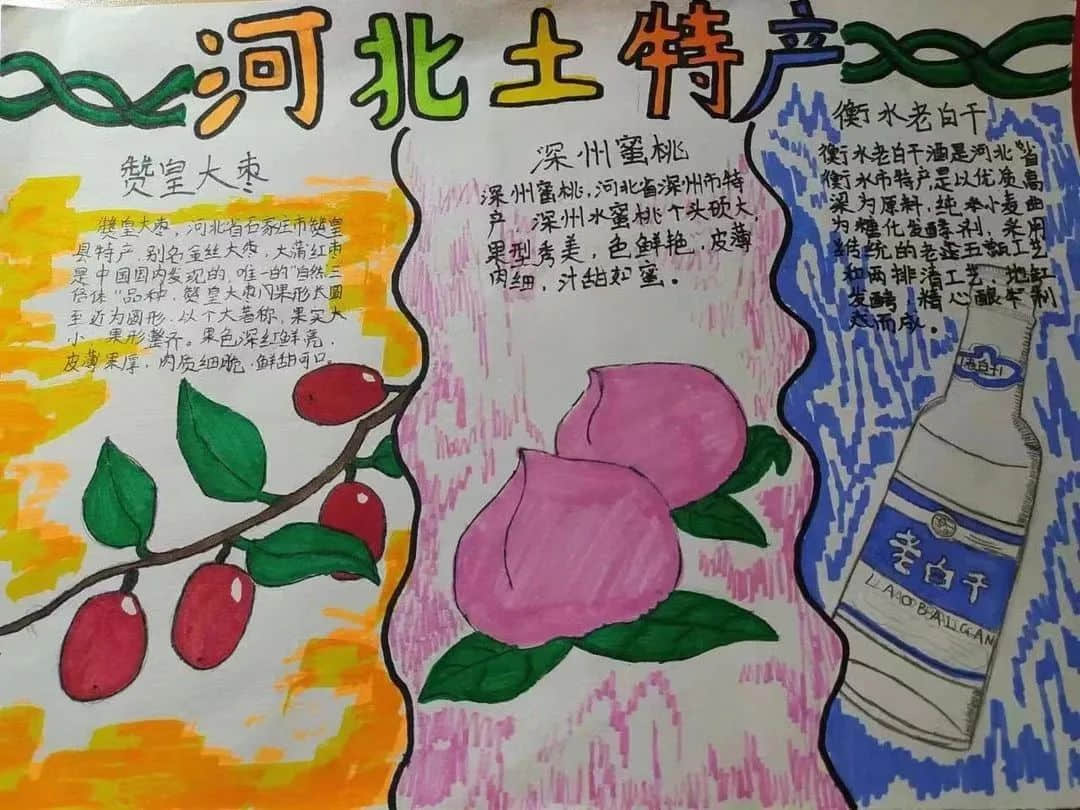 河北土特产
赞皇大枣
赞皇大枣，河北省石家庄市赞皇
县特产，别名金丝大枣，大蒲红枣
是中国国内发现的，唯一的"自然三
倍体"品种，赞皇大枣门果形长圆
至近为圆形，以个大著称，果实大
小，果形整齐。果色深红鲜亮，
皮薄果厚，肉质细脆，鲜甜可口。
深州蜜桃
深州蜜桃，河北省深州市特
产，深州水蜜桃个头硕大，
果型秀美，色鲜艳，皮薄
肉细，汁甜如蜜。
衡水老白干
衡水老白干酒是河北省
衡水市特产，是以优质高
梁为原料，纯米小麦曲
为糖化发酵剂，采用
统的老五甑工艺
和两排清工艺，地缸
发酵，精心酿
而成。
老白干
老白干